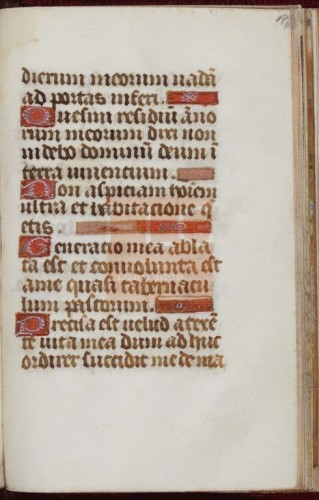 dierum meorum uadā
ad portas inferi.
Quesiui residuū āno
rum meorum dixi non
uidebo dominū deum ī
terra uiuentium.
Non aspiciam hoīem
ultra et habitacione q̄
etis.
Generatio mea abla
ta est et conuoluta est
a me quasi tabernacu
lum pastorum.
Precisa est uelud a texē
te uita mea dum adhuc
ordirer succidit me de ma